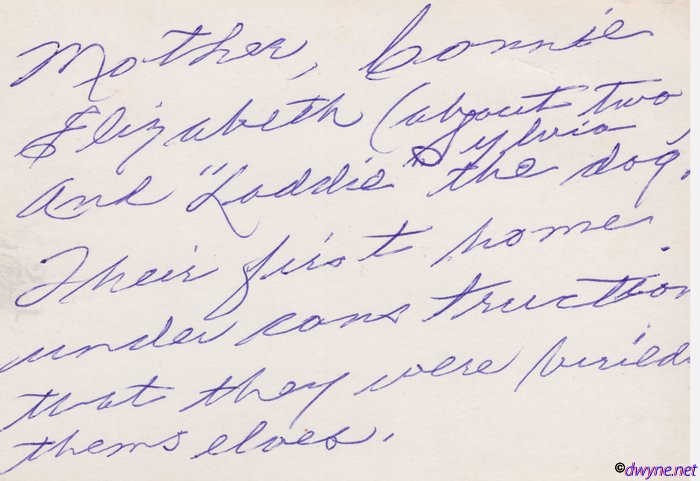 Mother, Connie
Elizabeth (about two)
Sylvia
and "Laddie" the dog.
Their first home
under construction
that they were build
themselves.
©dwyne.net